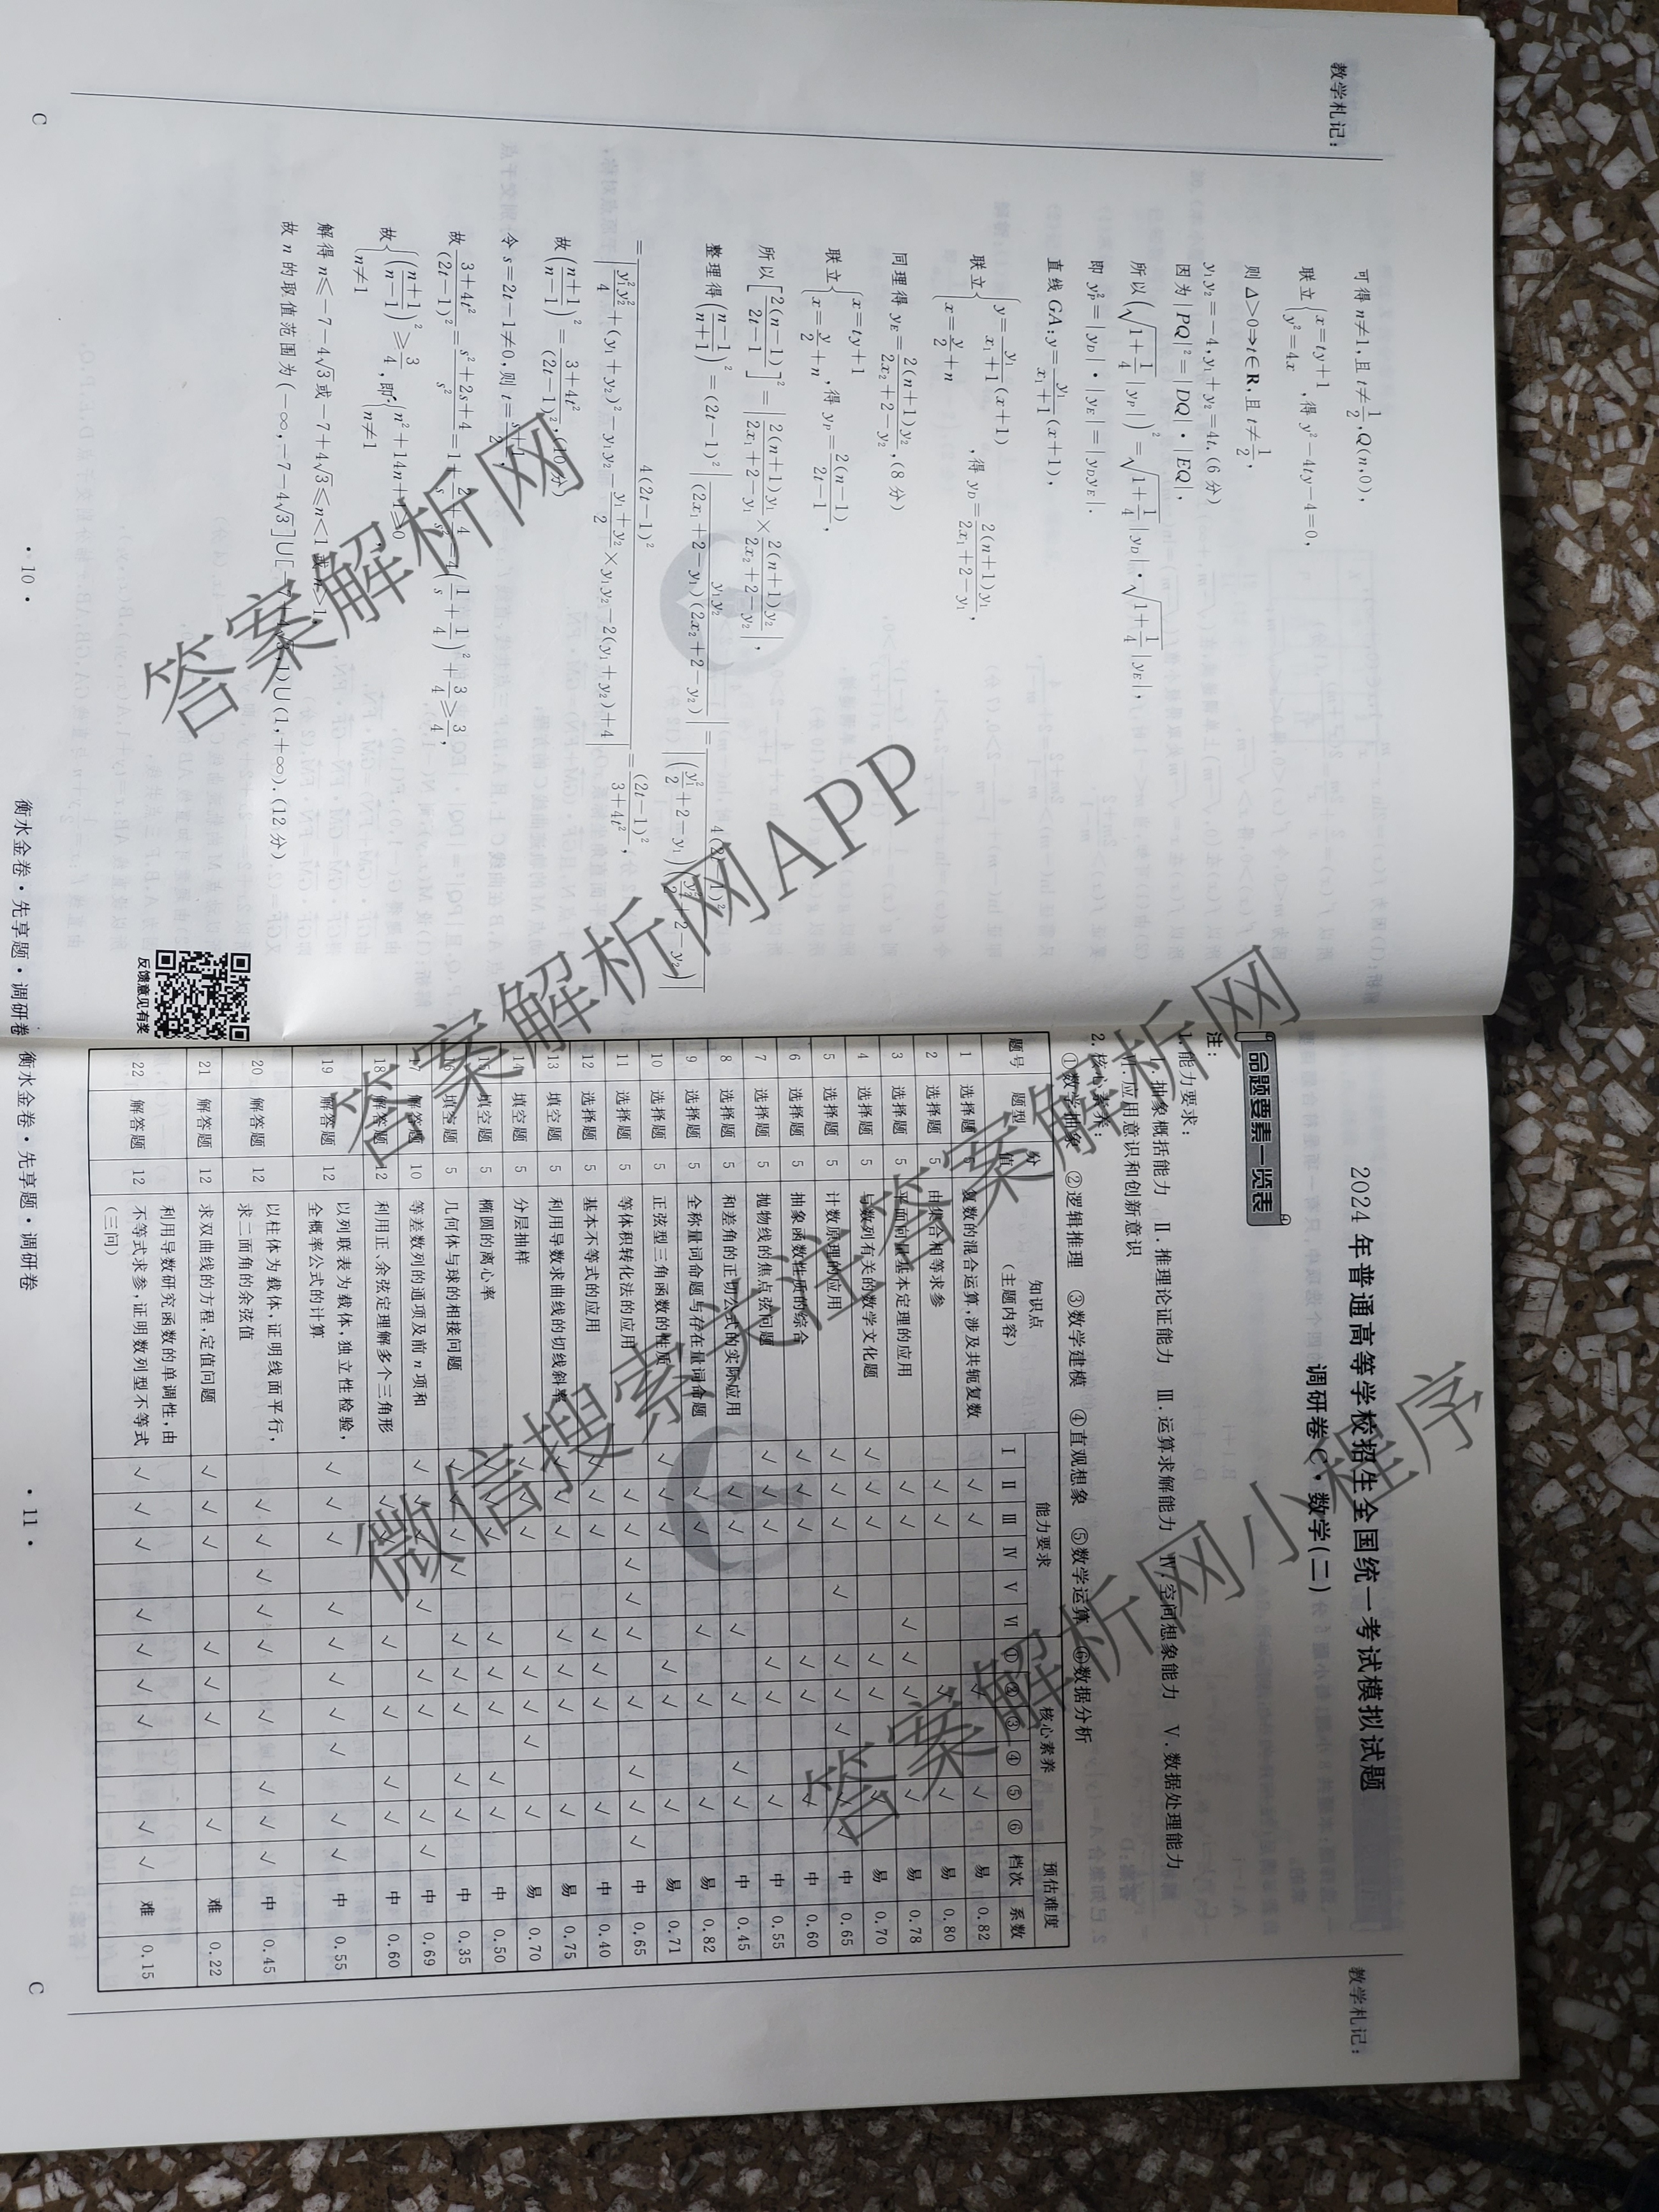 教学札记:
可得 n≠1,且 t≠1/2,Q(n,0),
联立{x=ty+1 y²=4x,得 y²-4ty-4=0,
则 Δ>0⇒t∈R,且 t≠1/2,
y₁y₂=-4,y₁+y₂=4t,(6分)
因为|PQ|²=|DQ|·|EQ|,
所以(√(1+1/4)|y_P|)²=√(1+1/4)|y_D|·√(1+1/4)|y_E|,
即 y_P²=|y_D|·|y_E|=|y_Dy_E|.
直线 GA:y=y₁/(x₁+1)(x+1),
联立{y=y₁/(x₁+1)(x+1) x=y/2+n,得 y_D=2(n+1)y₁/(2x₁+2-y₁),
同理得 y_E=2(n+1)y₂/(2x₂+2-y₂),(8分)
联立{x=ty+1 x=y/2+n,得 y_P=2(n-1)/(2t-1),
所以[2(n-1)/(2t-1)]²=|2(n+1)y₁/(2x₁+2-y₁)×2(n+1)y₂/(2x₂+2-y₂)|,
整理得((n-1)/(n+1))²=(2t-1)²|y₁y₂/((2x₁+2-y₁)(2x₂+2-y₂))|=4(2t-1)²/|(y₁²/2+2-y₁)(y₂²/2+2-y₂)|
=4(2t-1)²/|y₁²y₂²/4+(y₁+y₂)²-y₁y₂-(y₁+y₂)/2×y₁y₂-2(y₁+y₂)+4|=(2t-1)²/(3+4t²),
故((n+1)/(n-1))²=(3+4t²)/(2t-1)²,(10分)
令 s=2t-1≠0,则 t=(s+1)/2,
故(3+4t²)/(2t-1)²=(s²+2s+4)/s²=1+2/s+4/s²=4(1/s+1/4)²+3/4≥3/4,
故{((n+1)/(n-1))²≥3/4 n≠1,即{n²+14n+1≥0 n≠1,
解得 n≤-7-4√3或-7+4√3≤n<1或n>1,
故 n 的取值范围为(-∞,-7-4√3]∪[-7+4√3,1)∪(1,+∞).(12分)
反馈意见有奖
C
· 10 ·
衡水金卷·先享题·调研卷
教学札记:
2024年普通高等学校招生全国统一考试模拟试题
调研卷C·数学(二)
命题要素一览表
注:
1.能力要求:
Ⅰ.抽象概括能力 Ⅱ.推理论证能力 Ⅲ.运算求解能力 Ⅳ.空间想象能力 Ⅴ.数据处理能力
Ⅵ.应用意识和创新意识
2.核心素养:
①数学抽象 ②逻辑推理 ③数学建模 ④直观想象 ⑤数学运算 ⑥数据分析
题号 题型 分值 知识点(主题内容) 能力要求 核心素养 预估难度
Ⅰ Ⅱ Ⅲ Ⅳ Ⅴ Ⅵ ① ② ③ ④ ⑤ ⑥ 档次 系数
1 选择题 5 复数的混合运算,涉及共轭复数 √ √ √ √ 易 0.82
2 选择题 5 由集合相等求参 √ √ √ √ 易 0.80
3 选择题 5 平面向量基本定理的应用 √ √ √ √ √ √ 易 0.78
4 选择题 5 与数列有关的数学文化题 √ √ √ √ √ √ 易 0.70
5 选择题 5 计数原理的应用 √ √ √ √ √ √ √ √ √ 中 0.65
6 选择题 5 抽象函数性质的综合 √ √ √ √ √ √ 中 0.60
7 选择题 5 抛物线的焦点弦问题 √ √ √ √ √ √ 中 0.55
8 选择题 5 和差角的正切公式的实际应用 √ √ √ √ √ √ 中 0.45
9 选择题 5 全称量词命题与存在量词命题 √ √ √ √ √ 易 0.82
10 选择题 5 正弦型三角函数的性质 √ √ √ √ √ √ 易 0.71
11 选择题 5 等体积转化法的应用 √ √ √ √ √ √ √ √ √ 中 0.65
12 选择题 5 基本不等式的应用 √ √ √ √ √ √ √ 中 0.40
13 填空题 5 利用导数求曲线的切线斜率 √ √ √ √ √ √ 易 0.75
14 填空题 5 分层抽样 √ √ √ √ √ √ √ 易 0.70
15 填空题 5 椭圆的离心率 √ √ √ √ √ √ √ √ 中 0.50
16 填空题 5 几何体与球的相接问题 √ √ √ √ √ √ √ √ √ 中 0.35
17 解答题 10 等差数列的通项及前 n 项和 √ √ √ √ √ √ √ √ 中 0.69
18 解答题 12 利用正、余弦定理解多个三角形 √ √ √ √ √ √ 中 0.60
19 解答题 12 以列联表为载体,独立性检验,全概率公式的计算 √ √ √ √ √ √ √ √ √ 中 0.55
20 解答题 12 以柱体为载体,证明线面平行,求二面角的余弦值 √ √ √ √ √ √ √ √ √ 中 0.45
21 解答题 12 求双曲线的方程,定值问题 √ √ √ √ √ √ √ 难 0.22
22 解答题 12 利用导数研究函数的单调性,由不等式求参,证明数列型不等式(三问) √ √ √ √ √ √ √ √ √ 难 0.15
C
· 11 ·
衡水金卷·先享题·调研卷
答案解析网
答案解析网APP
微信搜索关注答案解析网
答案解析网小程序